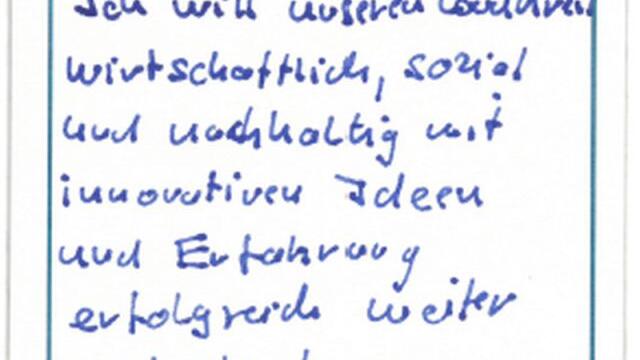 Ich will unseren
wirtschaftlich, sozial
und nachhaltig mit
innovativen Ideen
und Erfahrung
erfolgreich weiter